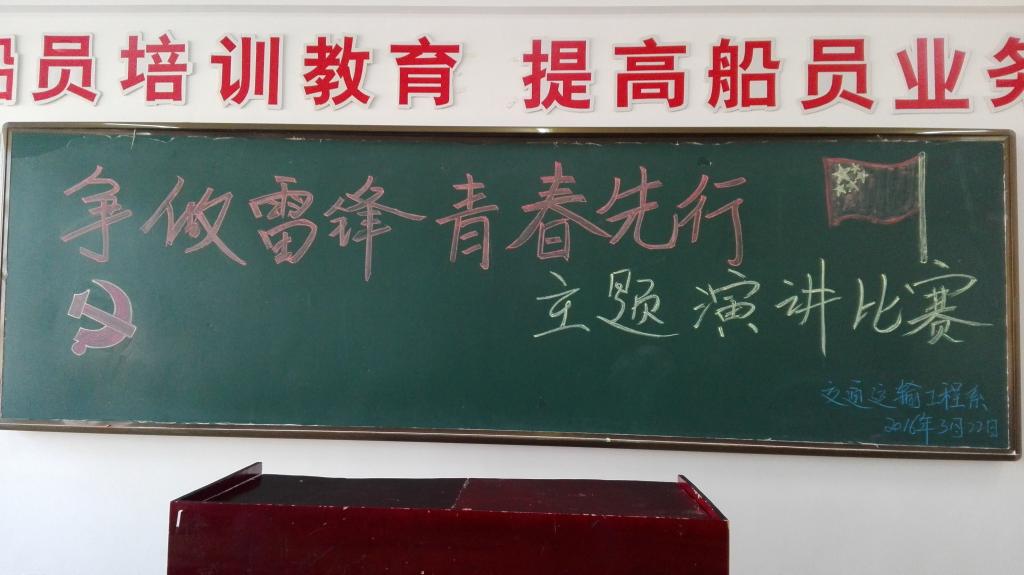 船员培训教育 提高船员业务
争做雷锋 青春先行
主题演讲比赛
交通运输工程系
2016年3月22日